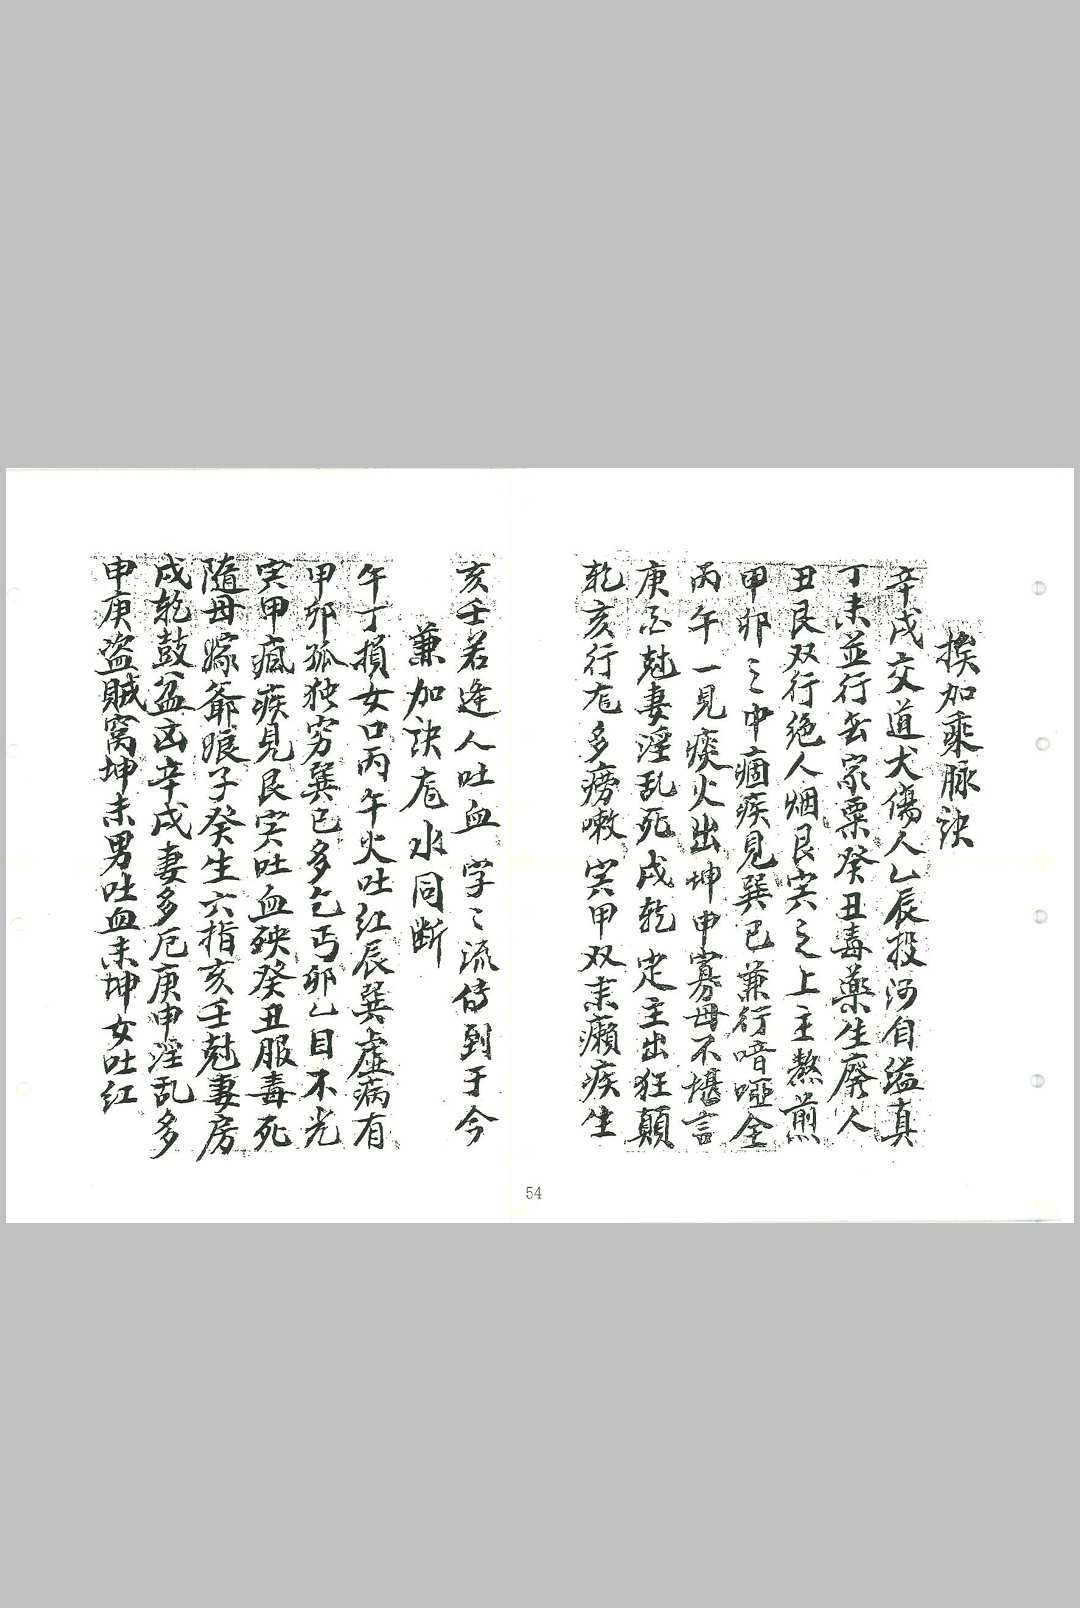 挨加乘脉訣
辛戌交道犬傷人乙辰投河自縊真
丁未並行去家粟癸丑毒藥生廢人
丑艮双行绝人烟艮寅之上主熬煎
甲卯之中痼疾見巽巳兼行喑啞全
丙午一見痰火出坤申寡母不堪言
庚酉尅妻淫乱死戌乾定主出狂顛
乾亥行龙多癆嗽寅甲双来癩疾生
亥壬若逢人吐血字之流传到于今
兼加訣龙水同断
午丁損女口丙午火吐红辰巽虚病有
甲卯孤独穷巽巳多乞丐卯乙目不光
寅甲瘋疾見艮寅吐血殃癸丑服毒死
隨母嫁爺娘子癸生六指亥壬尅妻房
戌乾鼓盆凶辛戌妻多厄庚申淫乱多
申庚盗賊窩坤未男吐血未坤女吐红
54